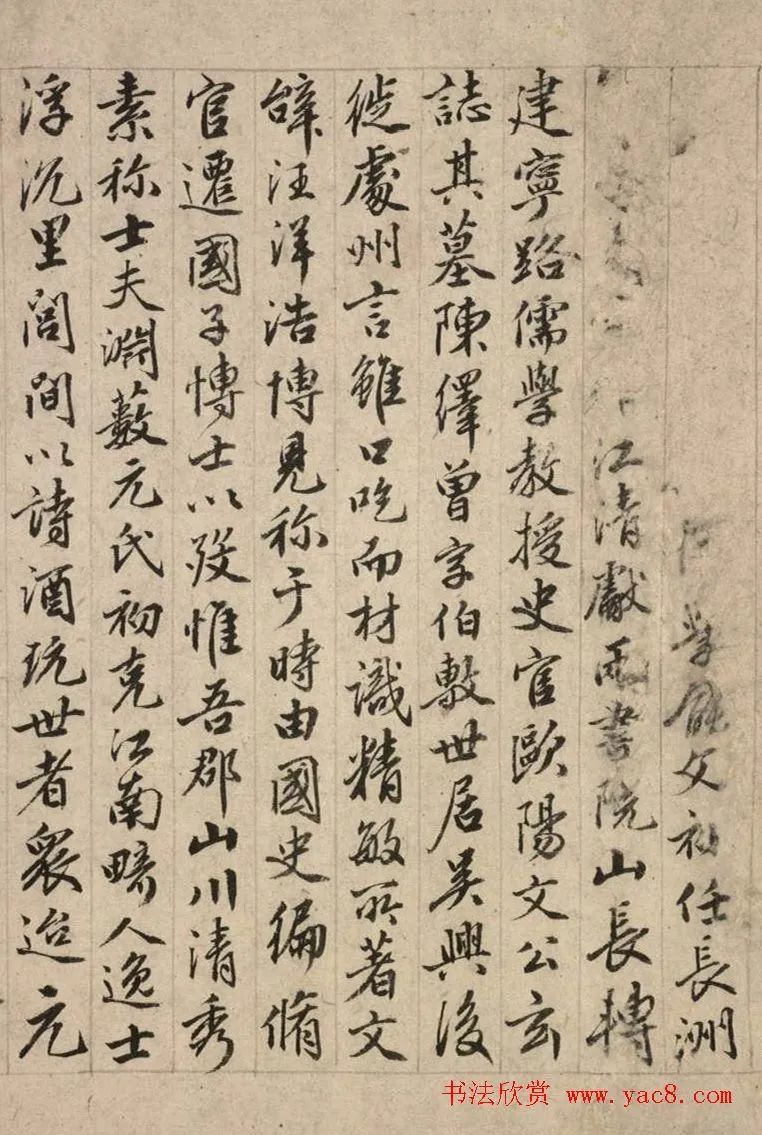 學能文初任長洲
江清獻書院山長轉
建寧路儒學教授史官歐陽文公玄
誌其墓陳繹曾字伯敷世居吳興後
徙處州言雖口吃而材識精敏所著文
辭汪洋浩博見称于時由國史編脩
官遷國子博士以歿惟吾郡山川清秀
素称士夫淵藪元氏初克江南畸人逸士
浮沉里閭間以詩酒玩世者衆迨元
书法欣赏 www.yac8.com